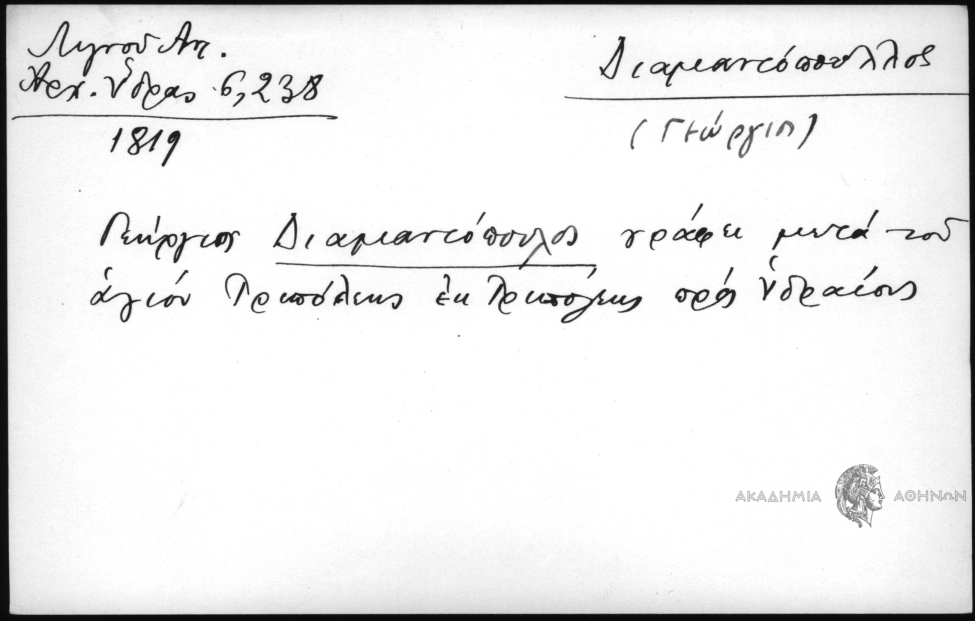 Λιγνοῦ Αν.
Ἀρχ. Ὕδρας 6, 238
1819
Διαμαντόπουλλος
(Γεώργιος)
Γεώργιος Διαμαντόπουλος γράφει μετά τοῦ
ἁγίου Τριπόλεως ἐκ Τριπόλεως πρός Ὑδραίους
ΑΚΑΔΗΜΙΑ ΑΘΗΝΩΝ